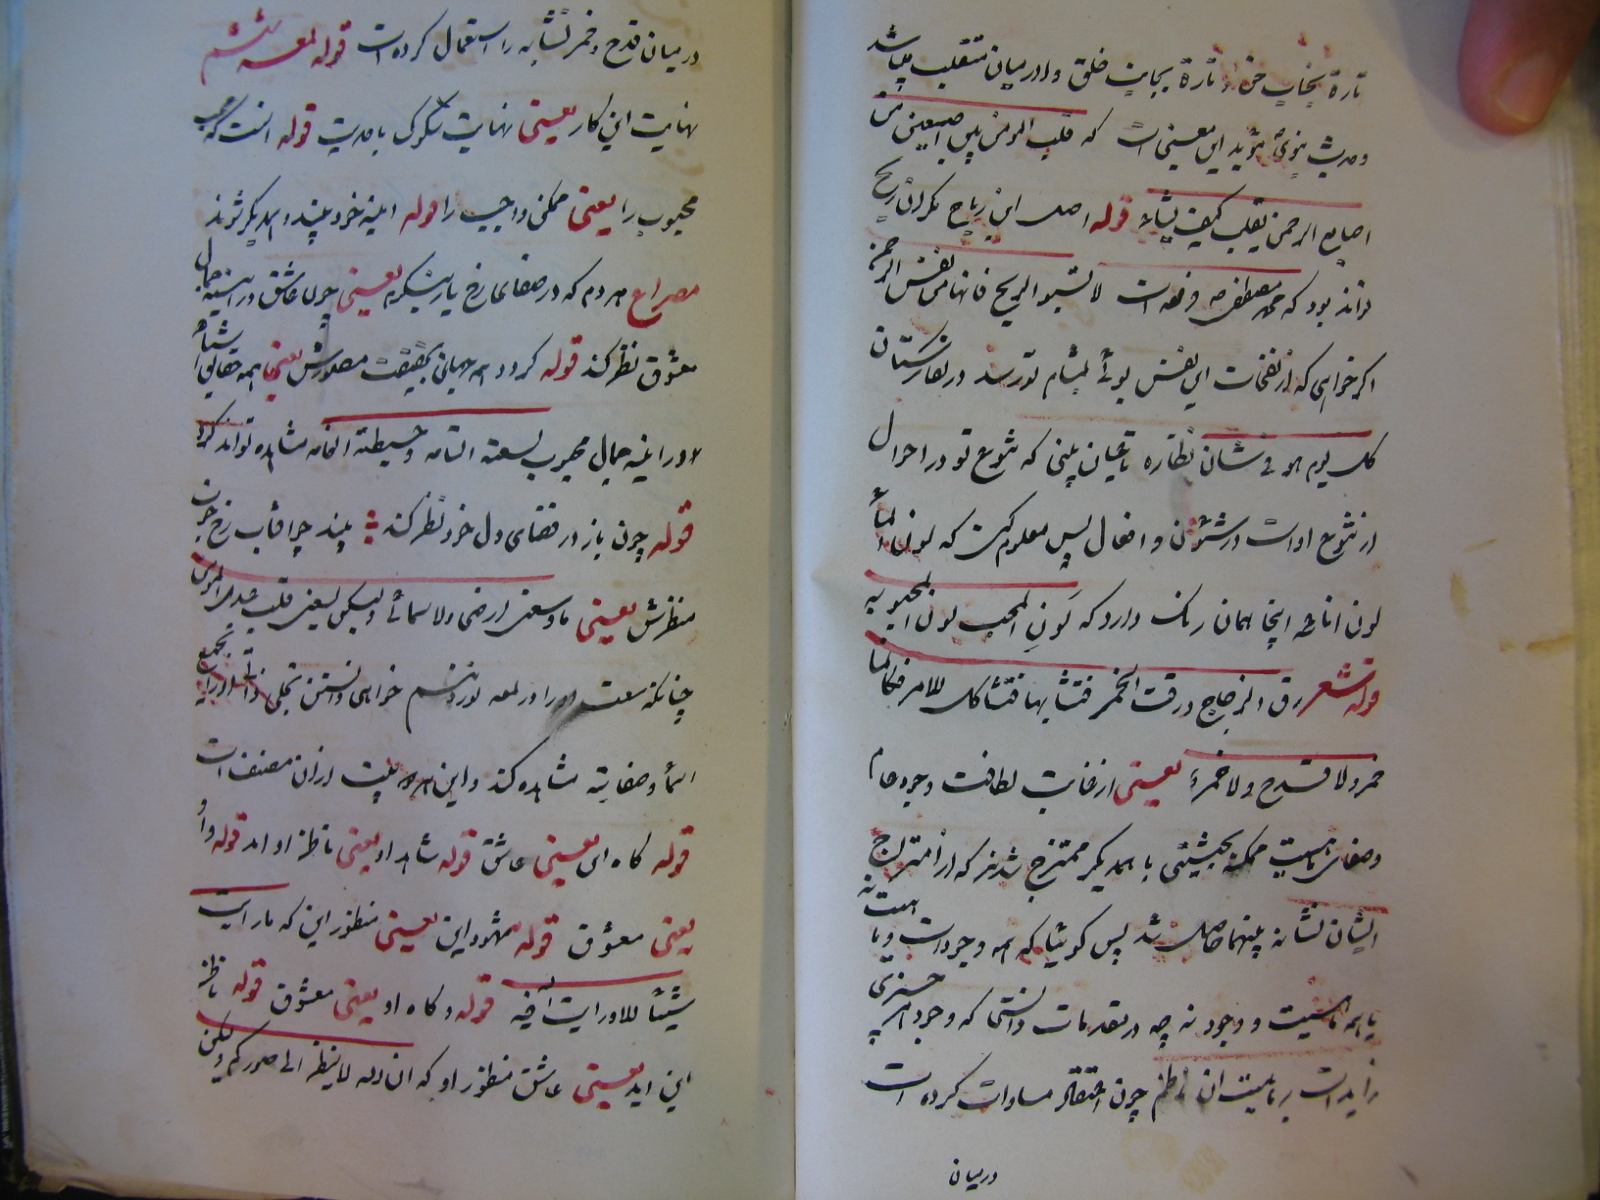 تارة بجانب حق و تارة بجانب خلق و او در میان متقلب میباشد
و حدیث نبوی مؤید این معنی است که قلب المومن بین اصبعین من
اصابع الرحمن یقلب کیف یشاء قوله اصل این ریاح مکر ان ریح
تواند بود که محمد مصطفی صه فرموده است لا تسبوا الریح فانها من نفس الرحمن
اکر خواهی که از نفحات این نفس بوئی بمشام تو رسد در نکارستان
کل یوم هو فی شان نظاره تا عیان بینی که تنوع تو در احوال
از تنوع اوست در شئون و افعال پس معلوم کنی که لون الماء
لون اناءه اینجا همان رنک دارد که لون المحب لون المحبوبه
قوله شعر رق الزجاج و رقت الخمر فتشابها فتشاکل الامر فکانما
خمر و لا قدح و لا خمر یعنی از غایت لطافت وجود عام
و صفای ماهیت ممکنه بحیثیتی با همدیکر ممتزج شدند که از امتزاج
ایشان تشابه بینهما حاصل شد پس کوئیا که همه وجود است و ماهیت نه
یا همه ماهیت و وجود نه چه در مقدمات دانستی که وجود هر چیزی
زاید است بر ماهیت ان ناظم چون مساوات کرده است
در میان
در میان قدح و خمر تشابه را استعمال کرده است قوله لمعه ششم
نهایت این کار یعنی نهایت سلوک باحدیت قوله انست که محب
محبوب را یعنی ممکن واجب را قوله اینه خود بیند و همدیکر شوند
مصراع هر دم که در صفای رخ یار بنکرم یعنی چون عاشق در اینه جمال
معشوق نظر کند قوله کردد همه جهان بحقیقت مصورش یعنی همه حقایق اشیاء
در اینه جمال محبوب لسعته التامه و حیطته مشاهده تواند کرد
قوله چون باز در فضای دل خود نظر کند بیند چو افتاب رخ خوب
منظرش یعنی ما وسعنی ارضی و لا سمائی و لیکن یسعنی قلب عبدی المومن
چنانکه سعت او را در لمعه نوزدهم خواهی دانستن تجلی ذات او را بجمیع
اسما و صفاته مشاهده کند و این هر دو بیت از ان مصنف است
قوله کاه ای یعنی عاشق قوله شاهد او یعنی ناظر او اید قوله و او
یعنی معشوق قوله مشهود این یعنی منظور این که ما رایت
شیئا الا و رایت الله فیه قوله و کاه او یعنی معشوق قوله ناظر
این اید یعنی عاشق منظور او که ان الله لا ینظر الی صورکم ولکن